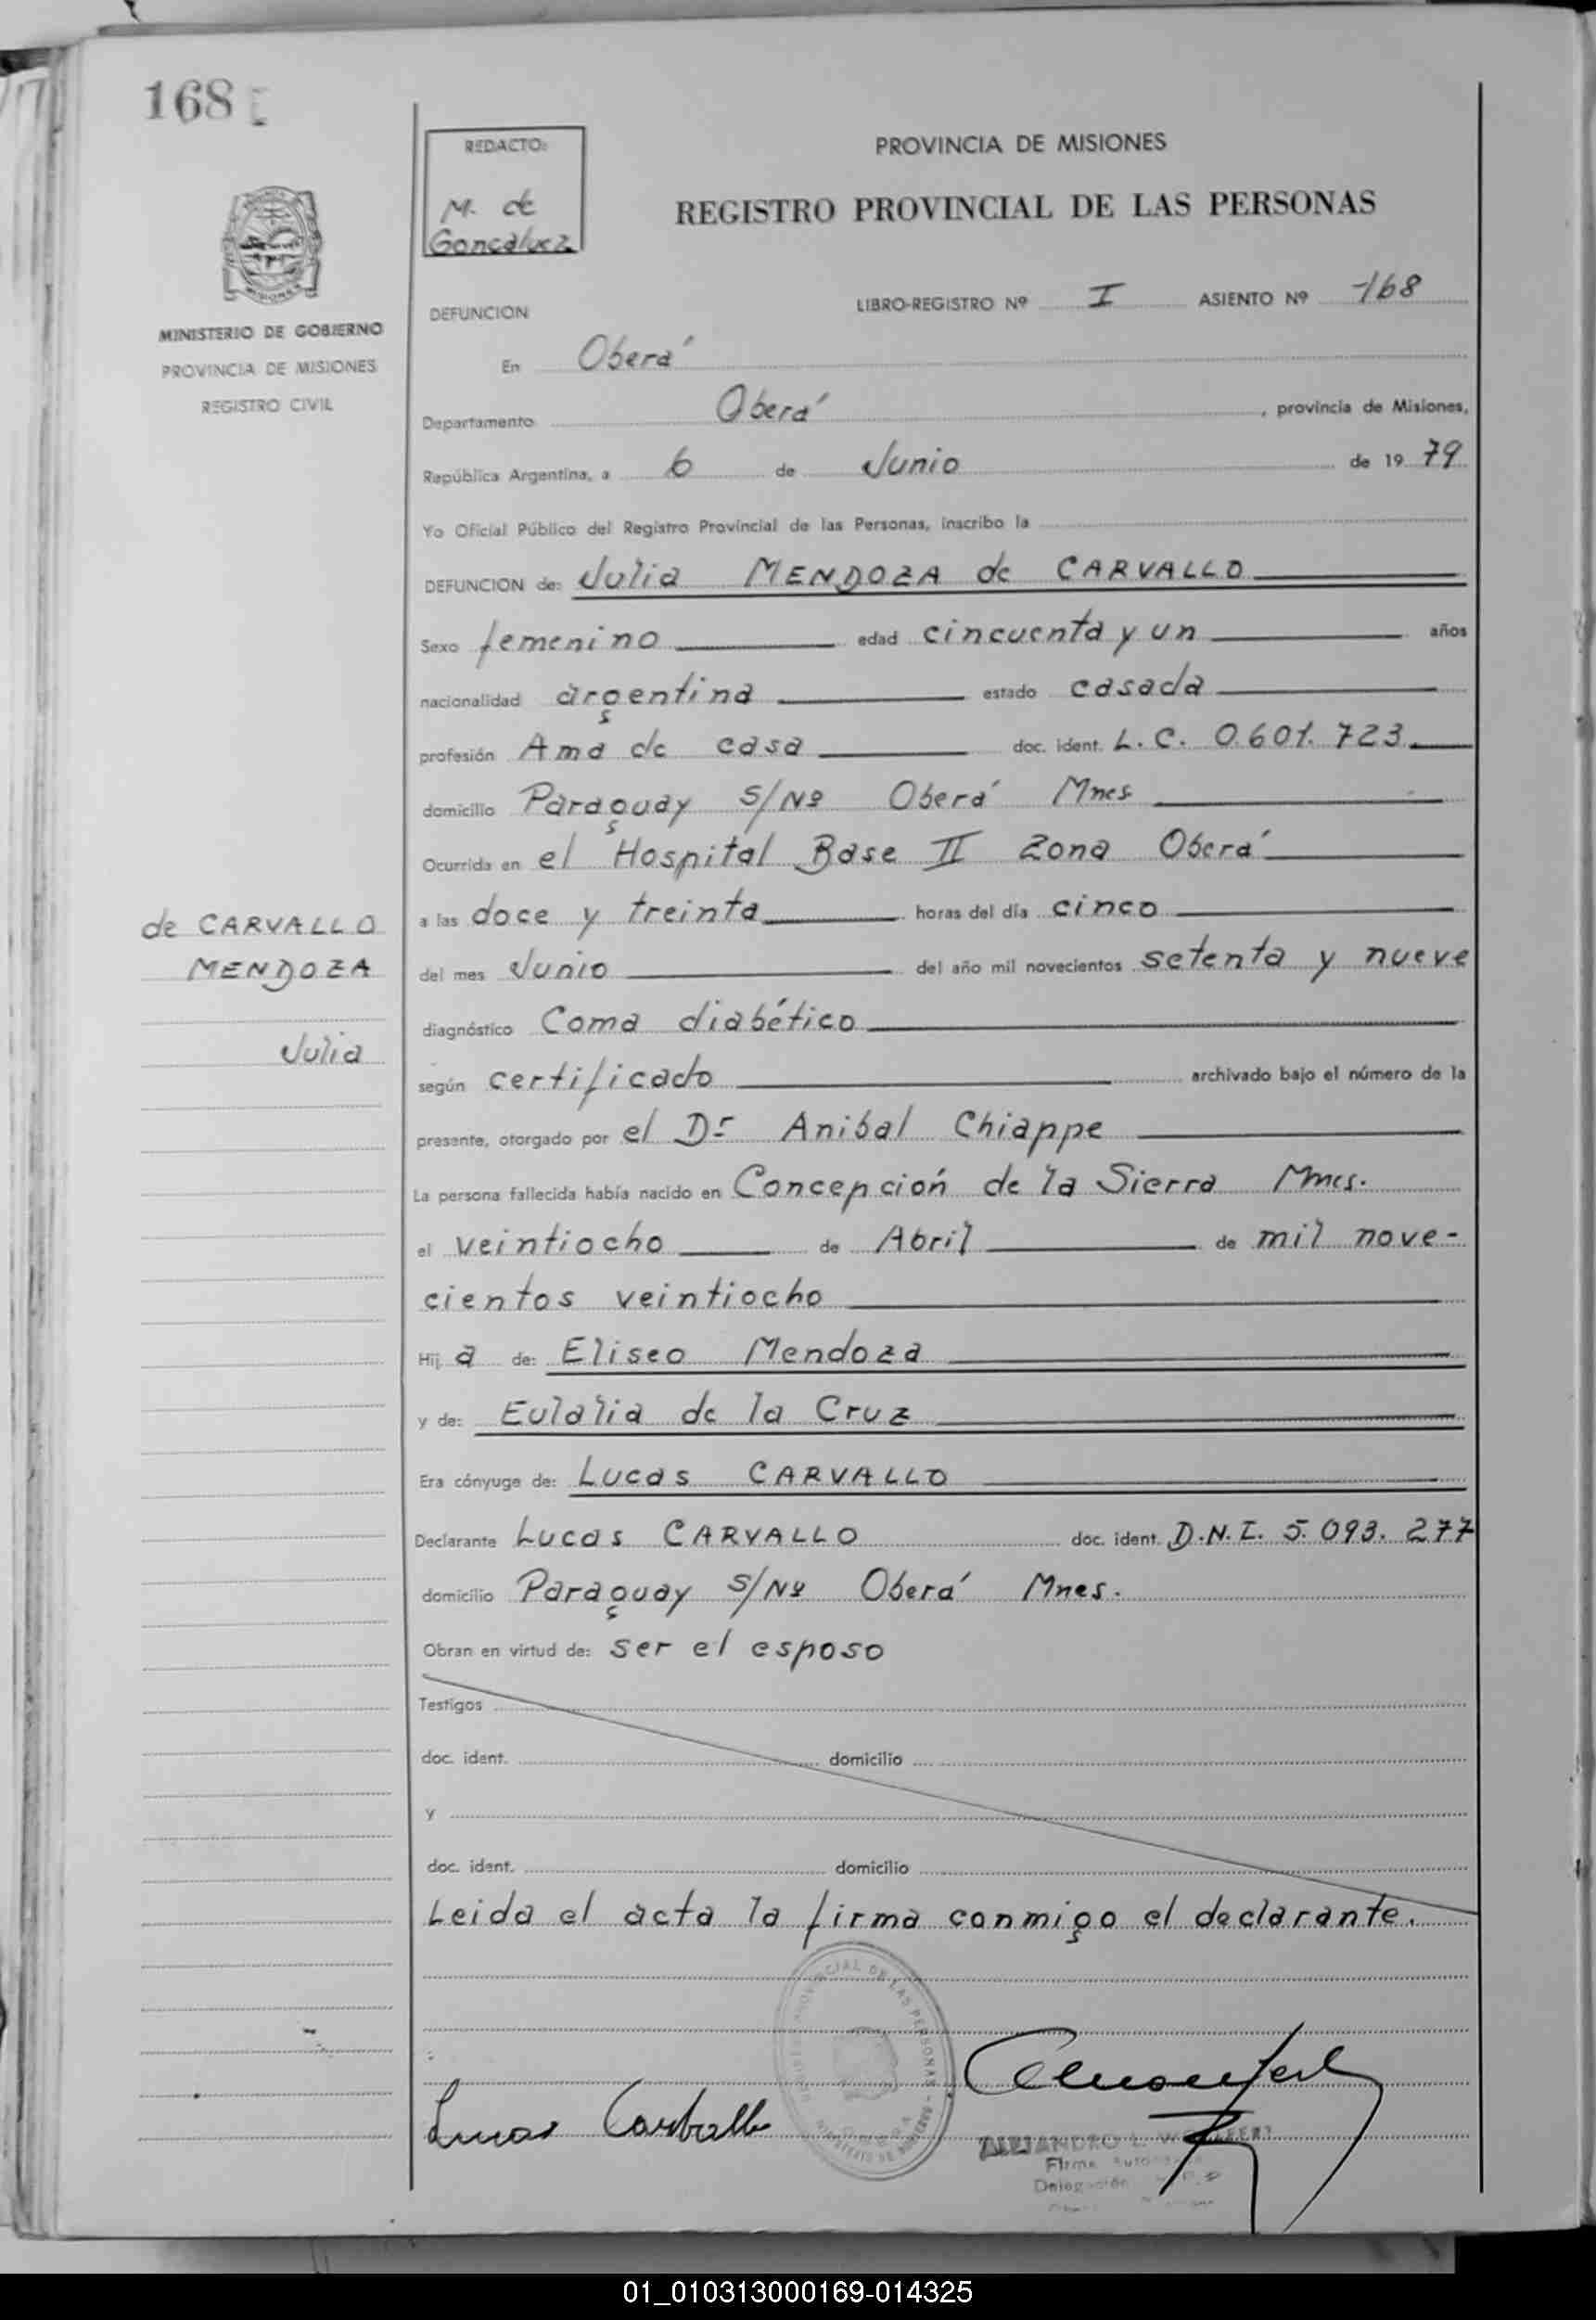 168
REDACTO:
M. de
Goncalvez
PROVINCIA DE MISIONES
REGISTRO PROVINCIAL DE LAS PERSONAS
MISIONES
MINISTERIO DE GOBIERNO
PROVINCIA DE MISIONES
REGISTRO CIVIL
DEFUNCION
LIBRO-REGISTRO Nº I ASIENTO Nº 168
En Oberá
Departamento Oberá, provincia de Misiones,
República Argentina, a 6 de Junio de 19 79
Yo Oficial Público del Registro Provincial de las Personas, inscribo la
DEFUNCION de: Julia MENDOZA de CARVALLO
Sexo femenino edad cincuenta y un años
nacionalidad argentina estado casada
profesión Ama de casa doc. ident. L. C. 0.601.723
domicilio Paraguay S/Nº Oberá Mnes
Ocurrida en el Hospital Base II Zona Oberá
a las doce y treinta horas del día cinco
del mes Junio del año mil novecientos setenta y nueve
diagnóstico Coma diabético
según certificado archivado bajo el número de la
presente, otorgado por el Dr Anibal Chiappe
La persona fallecida había nacido en Concepción de la Sierra Mnes.
el veintiocho de Abril de mil nove-
cientos veintiocho
Hij a de: Eliseo Mendoza
y de: Eulalia de la Cruz
Era cónyuge de: Lucas CARVALLO
Declarante Lucas CARVALLO doc. ident. D.N.I. 5.093.277
domicilio Paraguay S/Nº Oberá Mnes.
Obran en virtud de: ser el esposo
Testigos
doc. ident. domicilio
y
doc. ident. domicilio
Leida el acta la firma conmigo el declarante.
de CARVALLO
MENDOZA
Julia
Lucas Carballo
DE LAS PERSONAS
ALEJANDRO L.
Firma
Delegación
01_010313000169-014325